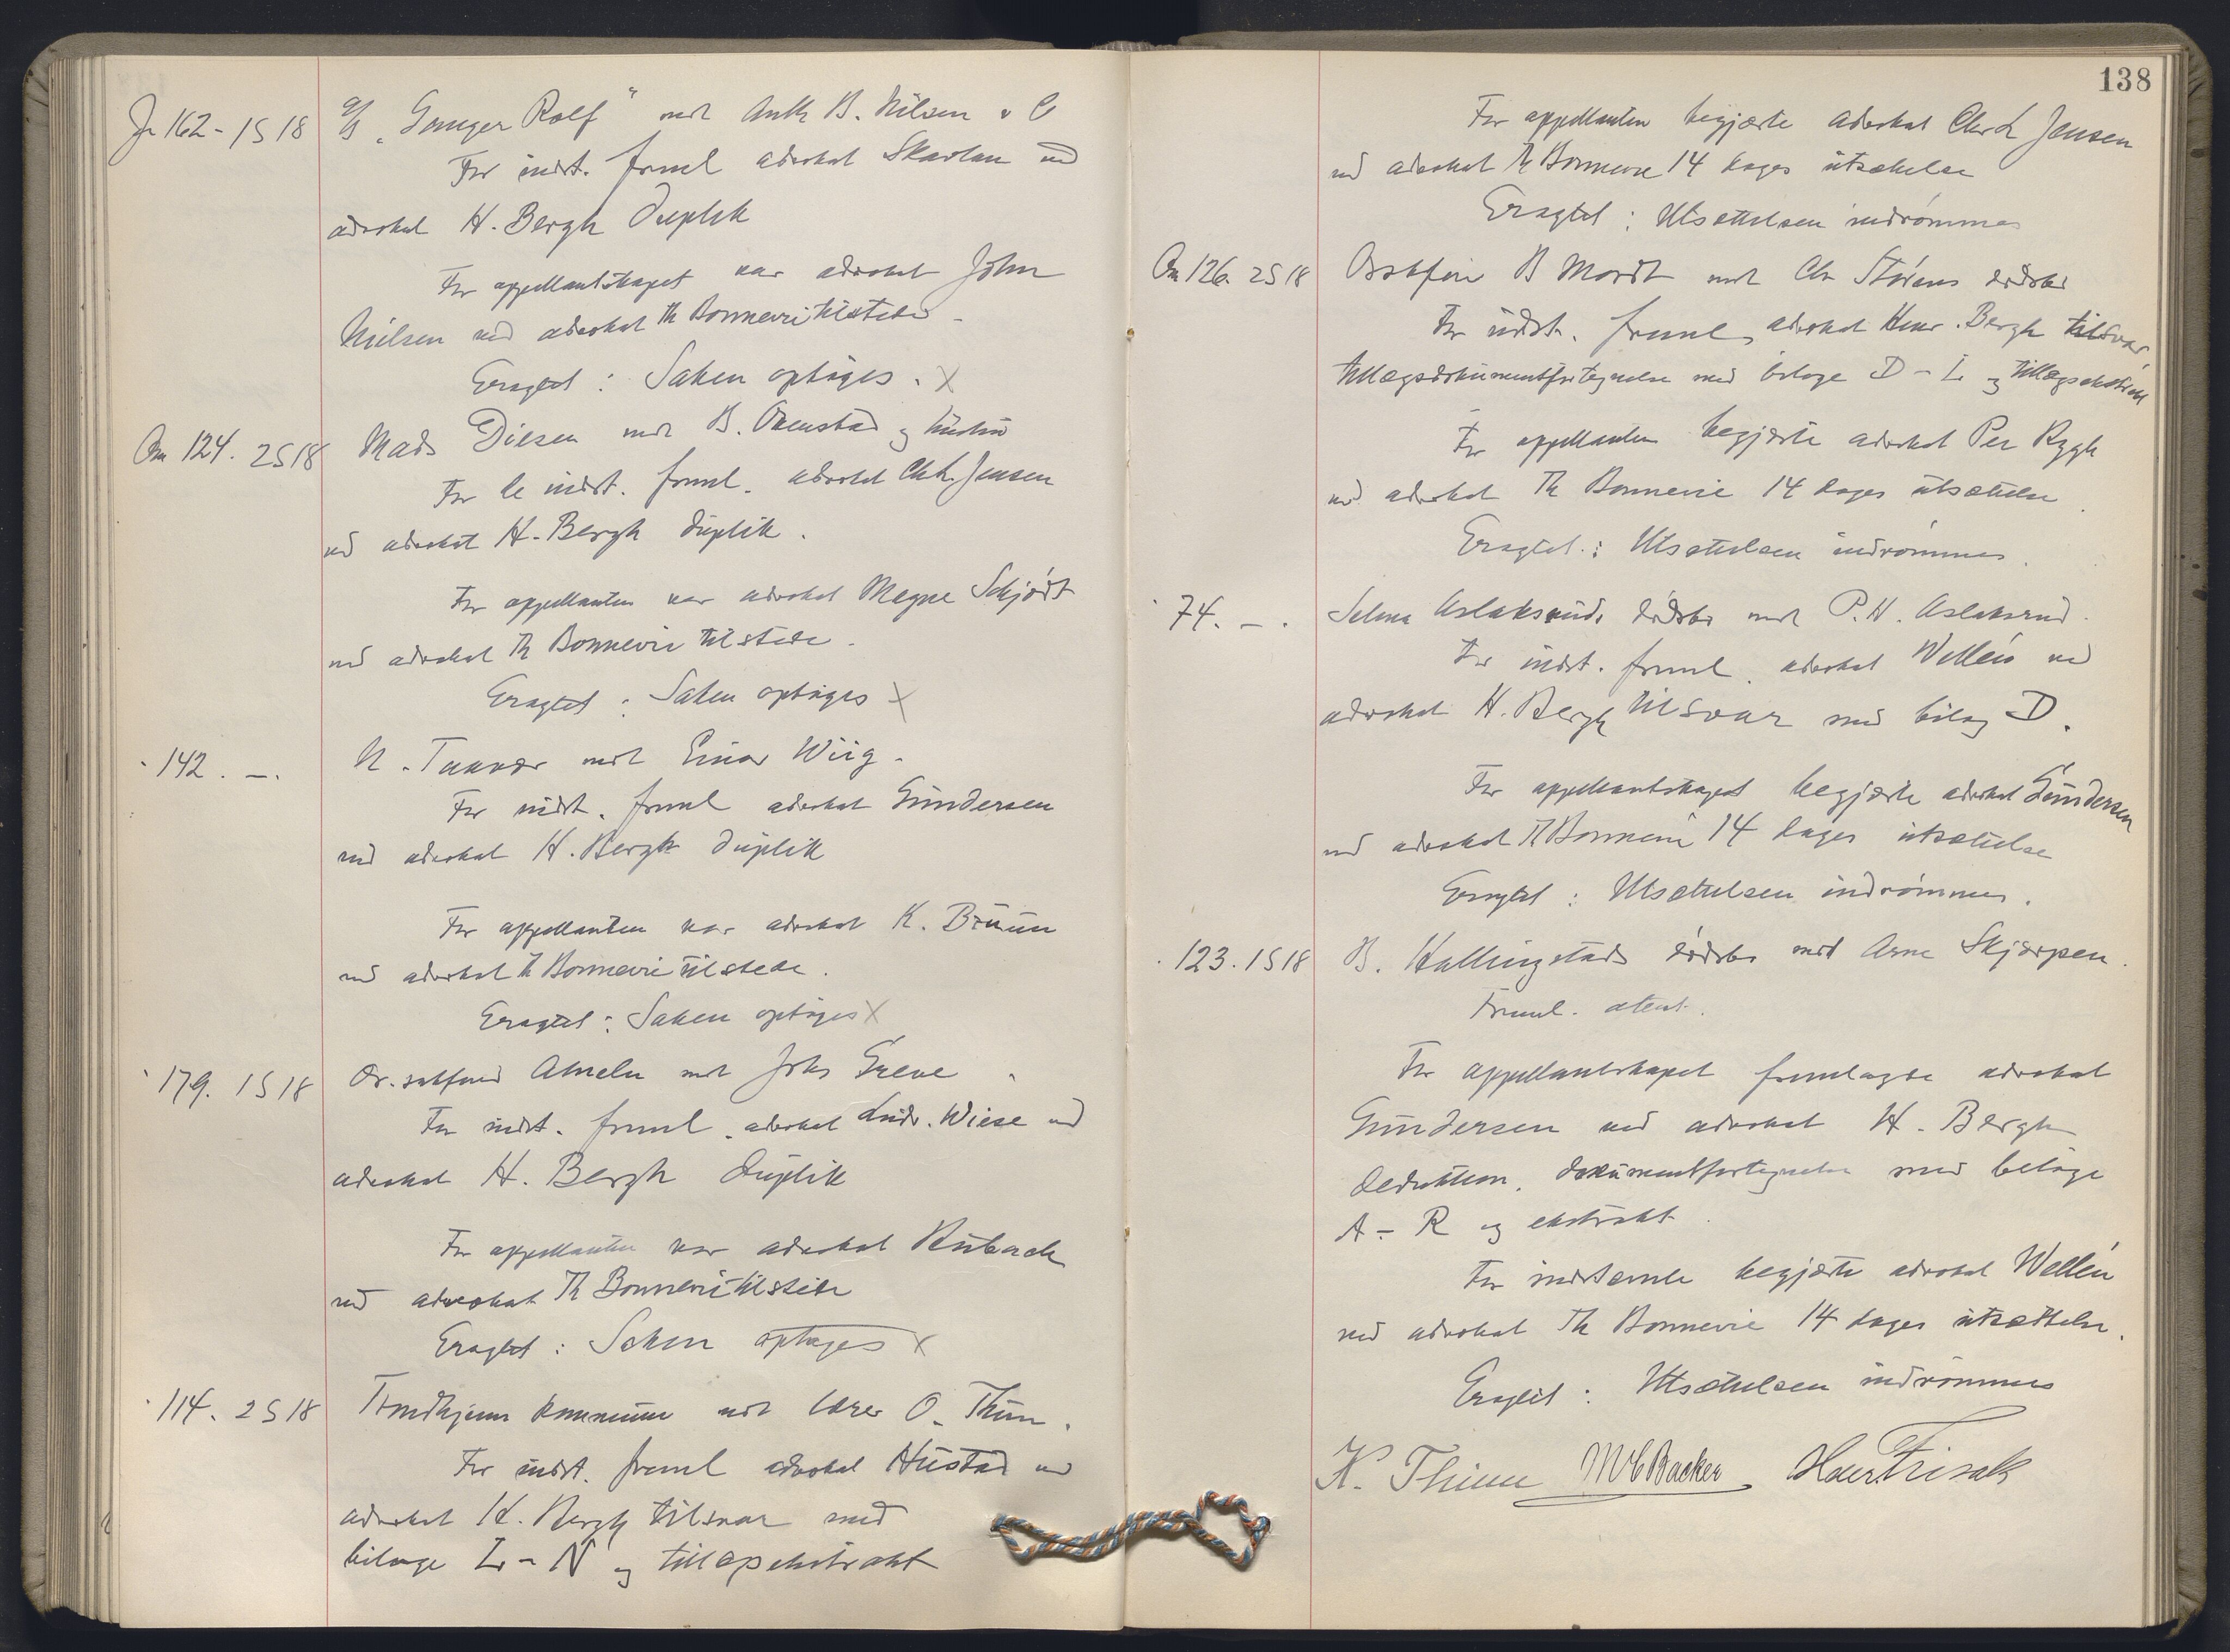 Jr 162 - 1S 18 A/S „Ganger Rolf" mot Anth B. Nilsen & Co
For indst. freml advokat Skavlan ved
advokat H. Bergh Duplik
For appellantskapet var advokat John
Nielsen ved advokat Th Bonnevie tilstede -
Eragtet : Saken optages . X
Om 124. 2S 18 Mads Diesen mot B. Ovenstad og hustru
For de indst. freml. advokat Chr L. Jensen
ved advokat H. Bergh duplik .
For appellanten var advokat Magne Schjødt
ved advokat Th Bonnevie tilstede .
Eragtet : Saken optages X
" 142 . - . N. Taknær mot Einar Wiig .
For indst. freml advokat Gundersen
ved advokat H. Bergh Duplik
For appellanten var advokat K. Bruun
ved advokat Th Bonnevie tilstede .
Eragtet : Saken optages X
" 179. 1S 18 Or. sakfører Ameln mot Johs Greve .
For indst. freml . advokat Ludv. Wiese ved
advokat H. Bergh Duplik
For appellanten var advokat Rubach
ved advokat Th Bonnevie tilstede
Eragtet : Saken optages X
" 114. 2S 18 Trondhjems kommune mot lærer O. Thun .
For indst. freml advokat Hustad ved
advokat H. Bergh tilsvar med
bilage L - N og tillægsekstrakt
138
For appellanten begjærte advokat Chr L Jensen
ved advokat Th Bonnevie 14 dages utsættelse
Eragtet : Utsættelsen indrømmes
Om 126. 2S 18 B Mordt mot Chr Størens dødsbo
For indst. freml, advokat Henr. Bergh tilsvar
tillægsdokumentfortegnelse med bilage D - L og tillægsekstrakt
For appellanten begjærte advokat Per Rygh
ved advokat Th Bonnevie 14 dages utsættelse .
Eragtet : Utsættelsen indrømmes .
" 74. - . Selma Aslaksruds dødsbo mot P.H. Aslaksrud .
For indst. freml . advokat Wellén ved
advokat H. Bergh tilsvar med bilag D .
For appellantskapet begjærte advokat Gundersen
ved advokat Th Bonnevie 14 dages utsættelse
Eragtet : Utsættelsen indrømmes .
" 123. 1S 18 B. Hallingstads dødsbo mot Arne Skjærpen .
Freml. atent .
For appellantskapet fremlagde advokat
Gundersen ved advokat H. Bergh
deduktion, dokumentfortegnelse med bilage
A - R og ekstrakt .
For indstevnte begjærte advokat Wellén
ved advokat Th Bonnevie 14 dages utsættelse .
Eragtet : Utsættelsen indrømmes
K. Thinn M C Backer Hans Frisak